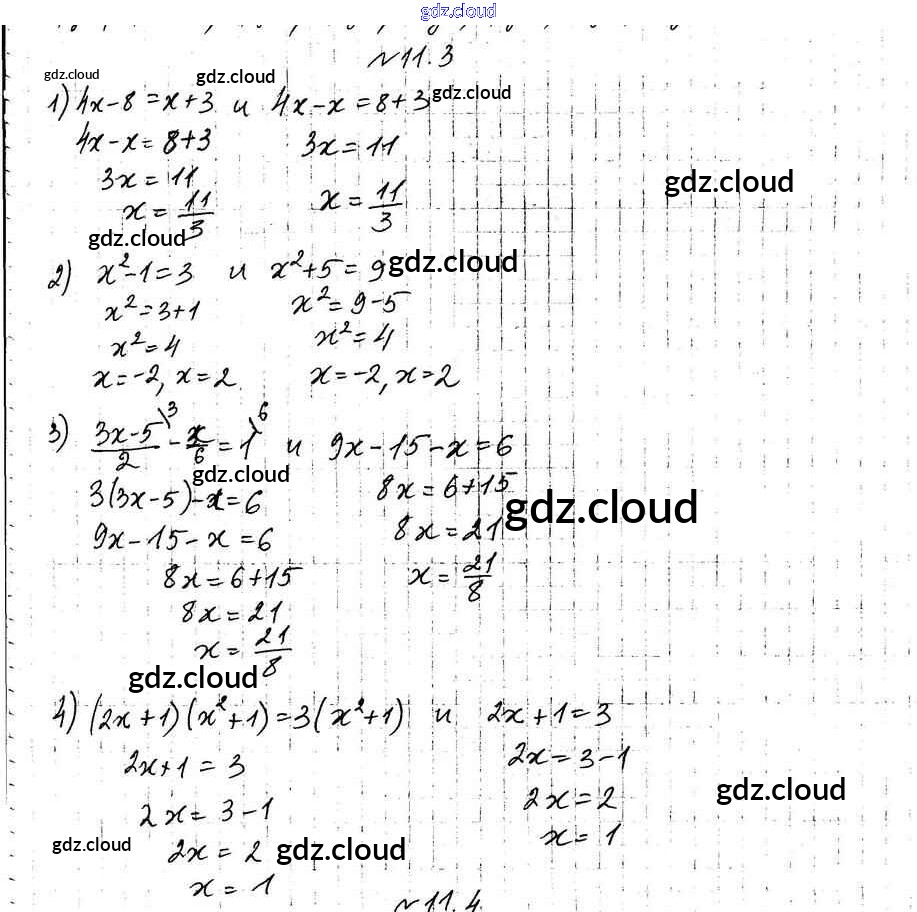 gdz.cloud
№11.3
gdz.cloud gdz.cloud gdz.cloud
1) 4x-8=x+3 и 4x-x=8+3
4x-x=8+3 3x=11
3x=11 x=11/3
gdz.cloud
x=11/3
gdz.cloud gdz.cloud
2) x²-1=3 и x²+5=9
x²=3+1 x²=9-5
x²=4 x²=4
x=-2, x=2 x=-2, x=2
3) (3x-5)/2 \3 - x/6 = 1 \6 и 9x-15-x=6
gdz.cloud
3(3x-5)-x=6 8x=6+15
gdz.cloud
9x-15-x=6 8x=21
8x=6+15 x=21/8
8x=21
x=21/8
gdz.cloud
4) (2x+1)(x²+1)=3(x²+1) и 2x+1=3
2x+1=3 2x=3-1
gdz.cloud
2x=3-1 2x=2
gdz.cloud gdz.cloud
2x=2 x=1
x=1
№11.4